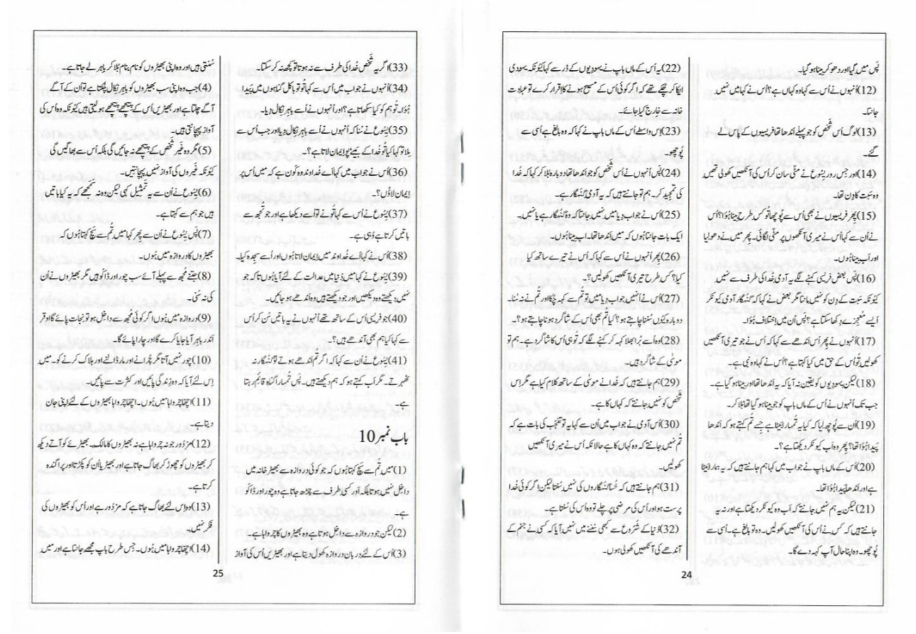 پس میں گیا اور دھو کر بینا ہو گیا۔
(12) اُنہوں نے اُس سے کہا وہ کہاں ہے؟ اُس نے کہا میں نہیں
جانتا۔
(13) لوگ اُس شخص کو جو پہلے اندھا تھا فریسیوں کے پاس لے
گئے۔
(14) اور جس روز یسُوع نے مٹی سان کر اُس کی آنکھیں کھولی تھیں
وہ سَبت کا دِن تھا۔
(15) پھر فریسیوں نے بھی اُس سے پُوچھا تُو کس طرح بینا ہُوا؟ اُس
نے اُن سے کہا اُس نے میری آنکھوں پر مٹی لگائی۔ پھر میں نے دھو لیا
اور اَب بینا ہُوں۔
(16) پس بعض فریسی کہنے لگے یہ آدمی خُدا کی طرف سے نہیں
کیونکہ سَبت کے دِن کو نہیں مانتا مگر بعض نے کہا کہ گنہگار آدمی کیونکر
اَیسے مُعجزے دِکھا سکتا ہے؟ پس اُن میں اِختلاف ہُوا۔
(17) اُنہوں نے پھر اُس اندھے سے کہا کہ اُس نے جو تیری آنکھیں
کھولیں تُو اُس کے حق میں کیا کہتا ہے؟ اُس نے کہا وہ نبی ہے۔
(18) لیکن یہودیوں کو یقین نہ آیا کہ یہ اندھا تھا اور بینا ہو گیا ہے۔
جب تک اُنہوں نے اُس کے ماں باپ کو جو بینا ہو گیا تھا بُلا کر۔
(19) اُن سے پُوچھ لیا کہ کیا یہ تُمہارا بیٹا ہے جسے تُم کہتے ہو کہ اندھا
پَیدا ہُوا تھا؟ پھر وہ اَب کیونکر دیکھتا ہے؟۔
(20) اُس کے ماں باپ نے جواب میں کہا ہم جانتے ہیں کہ یہ ہمارا بیٹا
ہے اور اندھا پَیدا ہُوا تھا۔
(21) لیکن یہ ہم نہیں جانتے کہ اَب وہ کیونکر دیکھتا ہے اور نہ یہ
جانتے ہیں کہ کس نے اُس کی آنکھیں کھولیں۔ وہ تو بالغ ہے۔ اُسی سے
پُوچھو۔ وہ اپنا حال آپ کہہ دے گا۔
(22) یہ اُس کے ماں باپ نے یہودیوں کے ڈر سے کہا کیونکہ یہودی
ایکا کر چکے تھے کہ اگر کوئی اُس کے مسیح ہونے کا اِقرار کرے تو عبادت
خانہ سے خارج کیا جائے۔
(23) اِس واسطے اُس کے ماں باپ نے کہا کہ وہ بالغ ہے اُسی سے
پُوچھو۔
(24) پس اُنہوں نے اُس شخص کو جو اندھا تھا دوبارہ بُلا کر کہا کہ خُدا
کی تمجید کر۔ ہم تو جانتے ہیں کہ یہ آدمی گنہگار ہے۔
(25) اُس نے جواب دیا میں نہیں جانتا کہ وہ گنہگار ہے یا نہیں۔
ایک بات جانتا ہوں کہ میں اندھا تھا۔ اب بینا ہُوں۔
(26) پھر اُنہوں نے اُس سے کہا کہ اُس نے تیرے ساتھ کیا
کیا؟ کس طرح تیری آنکھیں کھولیں؟۔
(27) اُس نے اُنہیں جواب دیا میں تو تُم سے کہہ چُکا اور تُم نے نہ سُنا۔
دوبارہ کیوں سُننا چاہتے ہو؟ کیا تُم بھی اُس کے شاگرد ہونا چاہتے ہو؟۔
(28) وہ اُسے بُرا بھلا کہہ کر کہنے لگے کہ تُو ہی اُس کا شاگرد ہے۔ ہم تو
مُوسیٰ کے شاگرد ہیں۔
(29) ہم جانتے ہیں کہ خُدا نے مُوسیٰ کے ساتھ کلام کیا ہے مگر اِس
شخص کو نہیں جانتے کہ کہاں کا ہے۔
(30) اُس آدمی نے جواب میں اُن سے کہا یہ تو تعجب کی بات ہے کہ
تُم نہیں جانتے کہ وہ کہاں کا ہے حالانکہ اُس نے میری آنکھیں
کھولیں۔
(31) ہم جانتے ہیں کہ خُدا گنہگاروں کی نہیں سُنتا لیکن اگر کوئی خُدا
پرست ہو اور اُس کی مرضی پر چلے تو وہ اُس کی سُنتا ہے۔
(32) دُنیا کے شُروع سے کبھی سُننے میں نہیں آیا کہ کسی نے جنم کے
اندھے کی آنکھیں کھولی ہوں۔
24
(33) اگر یہ شخص خُدا کی طرف سے نہ ہوتا تو کُچھ نہ کر سکتا۔
(34) اُنہوں نے جواب میں اُس سے کہا تُو تو بالکل گُناہوں میں پَیدا
ہُوا۔ تُو ہم کو کیا سکھاتا ہے؟ اور اُنہوں نے اُسے باہر نکال دِیا۔
(35) یسُوع نے سُنا کہ اُنہوں نے اُسے باہر نکال دِیا اور جب اُس سے
مِلا تو کہا کیا تُو خُدا کے بیٹے پر اِیمان لاتا ہے؟۔
(36) اُس نے جواب میں کہا اَے خُداوند وہ کون ہے کہ میں اُس پر
اِیمان لاؤں؟۔
(37) یسُوع نے اُس سے کہا تُو نے تو اُسے دیکھا ہے اور جو تُجھ سے
باتیں کرتا ہے وُہی ہے۔
(38) اُس نے کہا اَے خُداوند میں اِیمان لاتا ہُوں اور اُسے سجدہ کیا۔
(39) یسُوع نے کہا میں دُنیا میں عدالت کے لئے آیا ہُوں تاکہ جو
نہیں دیکھتے وہ دیکھیں اور جو دیکھتے ہیں وہ اندھے ہو جائیں۔
(40) جو فریسی اُس کے ساتھ تھے اُنہوں نے یہ باتیں سُن کر اُس
سے کہا کیا ہم بھی اندھے ہیں؟۔
(41) یسُوع نے اُن سے کہا کہ اگر تُم اندھے ہوتے تو گنہگار نہ
ٹھہرتے۔ مگر اَب کہتے ہو کہ ہم دیکھتے ہیں۔ پس تُمہارا گُناہ قائم رہتا
ہے۔
باب نمبر 10
(1) میں تُم سے سچ کہتا ہُوں کہ جو کوئی دروازہ سے بھیڑ خانہ میں
داخل نہیں ہوتا بلکہ اَور کسی طرف سے چڑھ جاتا ہے وہ چور اور ڈاکُو
ہے۔
(2) لیکن جو دروازہ سے داخل ہوتا ہے وہ بھیڑوں کا چرواہا ہے۔
(3) اُس کے لئے دربان دروازہ کھول دیتا ہے اور بھیڑیں اُس کی آواز
سُنتی ہیں اور وہ اپنی بھیڑوں کو نام بنام بُلا کر باہر لے جاتا ہے۔
(4) جب وہ اپنی سب بھیڑوں کو باہر نکال چُکتا ہے تو اُن کے آگے
آگے چلتا ہے اور بھیڑیں اُس کے پیچھے پیچھے ہو لیتی ہیں کیونکہ وہ اُس کی
آواز پہچانتی ہیں۔
(5) مگر وہ غیر شخص کے پیچھے نہ جائیں گی بلکہ اُس سے بھاگیں گی
کیونکہ غیروں کی آواز نہیں پہچانتیں۔
(6) یسُوع نے اُن سے یہ تمثیل کہی لیکن وہ نہ سمجھے کہ یہ کیا باتیں
ہیں جو ہم سے کہتا ہے۔
(7) پس یسُوع نے اُن سے پھر کہا میں تُم سے سچ کہتا ہُوں کہ
بھیڑوں کا دروازہ میں ہُوں۔
(8) جتنے مُجھ سے پہلے آئے سب چور اور ڈاکُو ہیں مگر بھیڑوں نے اُن
کی نہ سُنی۔
(9) دروازہ میں ہُوں اگر کوئی مُجھ سے داخل ہو تو نجات پائے گا اور
اندر باہر آیا جایا کرے گا اور چارا پائے گا۔
(10) چور نہیں آتا مگر چُرانے اور مار ڈالنے اور ہلاک کرنے کو۔ میں
اِس لئے آیا کہ وہ زندگی پائیں اور کثرت سے پائیں۔
(11) اچھا چرواہا میں ہُوں۔ اچھا چرواہا بھیڑوں کے لئے اپنی جان
دیتا ہے۔
(12) مزدُور جو نہ چرواہا ہے نہ بھیڑوں کا مالک۔ بھیڑیے کو آتے دیکھ
کر بھیڑوں کو چھوڑ کر بھاگ جاتا ہے اور بھیڑیا اُن کو پکڑتا اور پراگندہ
کرتا ہے۔
(13) وہ اِس لئے بھاگ جاتا ہے کہ مزدُور ہے اور اُس کو بھیڑوں کی
فکر نہیں۔
(14) اچھا چرواہا میں ہُوں۔ جس طرح باپ مُجھے جانتا ہے اور میں
25